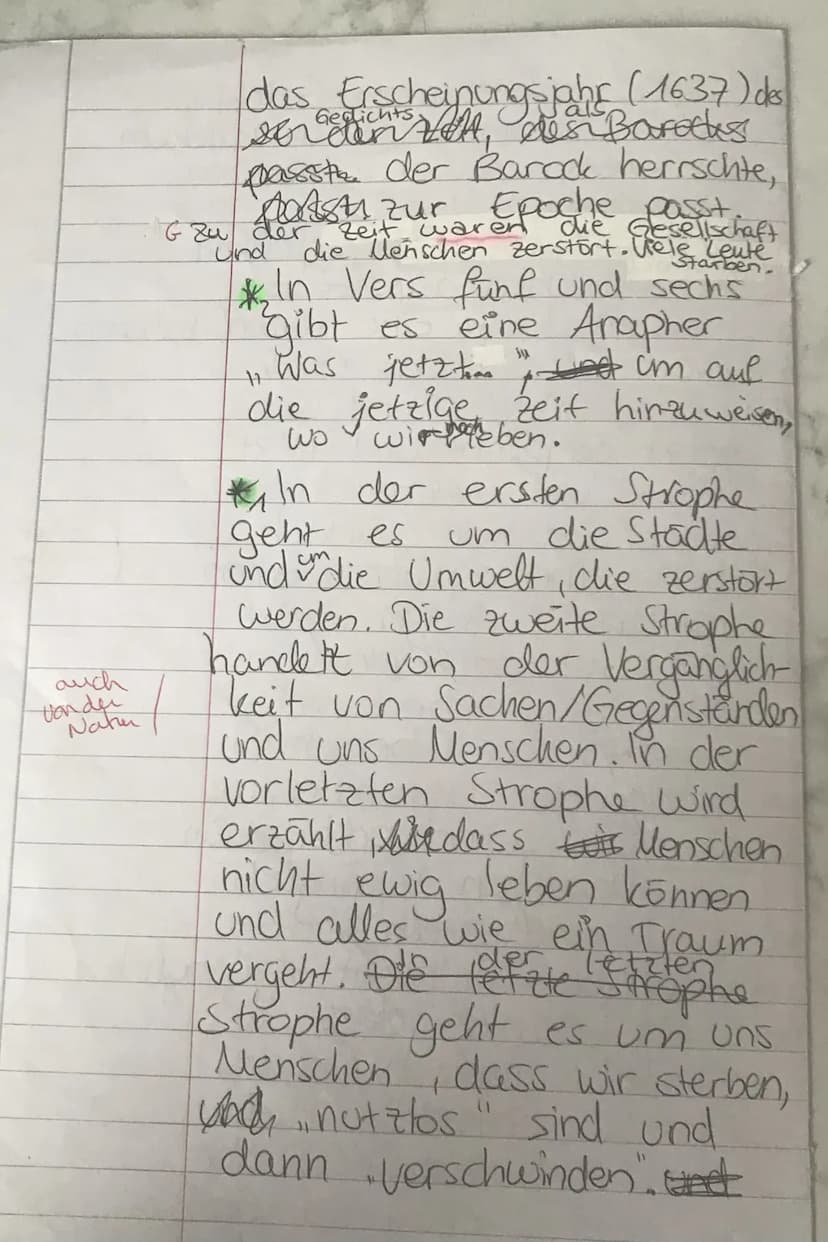 das Erscheinungsjahr (1637) des
Gedichts, als
der Barock herrschte,
zur Epoche passt.
G Zu der Zeit waren die Gesellschaft
und die Menschen zerstört. Viele Leute
starben.
*2 In Vers fünf und sechs
gibt es eine Anapher
„Was jetzt...", um auf
die jetzige Zeit hinzuweisen,
wo wir noch leben.
*1 In der ersten Strophe
geht es um die Städte
und um die Umwelt, die zerstört
werden. Die zweite Strophe
handelt von der Vergänglich-
auch
von der
Natur
keit von Sachen/Gegenständen
und uns Menschen. In der
vorletzten Strophe wird
erzählt, dass Menschen
nicht ewig leben können
und alles wie ein Traum
vergeht. In der letzten
Strophe geht es um uns
Menschen, dass wir sterben,
„nutzlos" sind und
dann „verschwinden".